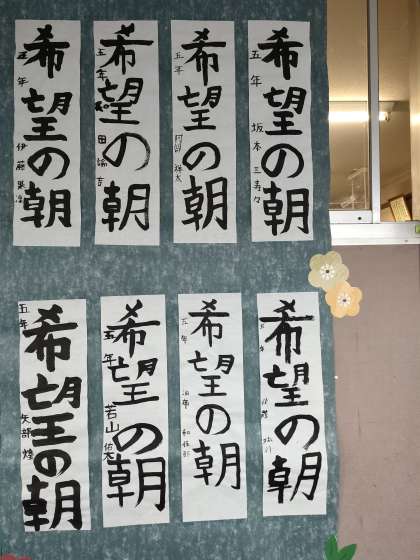 希望の朝
五年 伊藤
希望の朝
五年 田端
希望の朝
五年 阿部 祥太
希望の朝
五年 坂本 三寿々
希望の朝
五年 矢部 煌
希望の朝
五年 若山 佑太
希望の朝
五年 和佐
希望の朝
五年